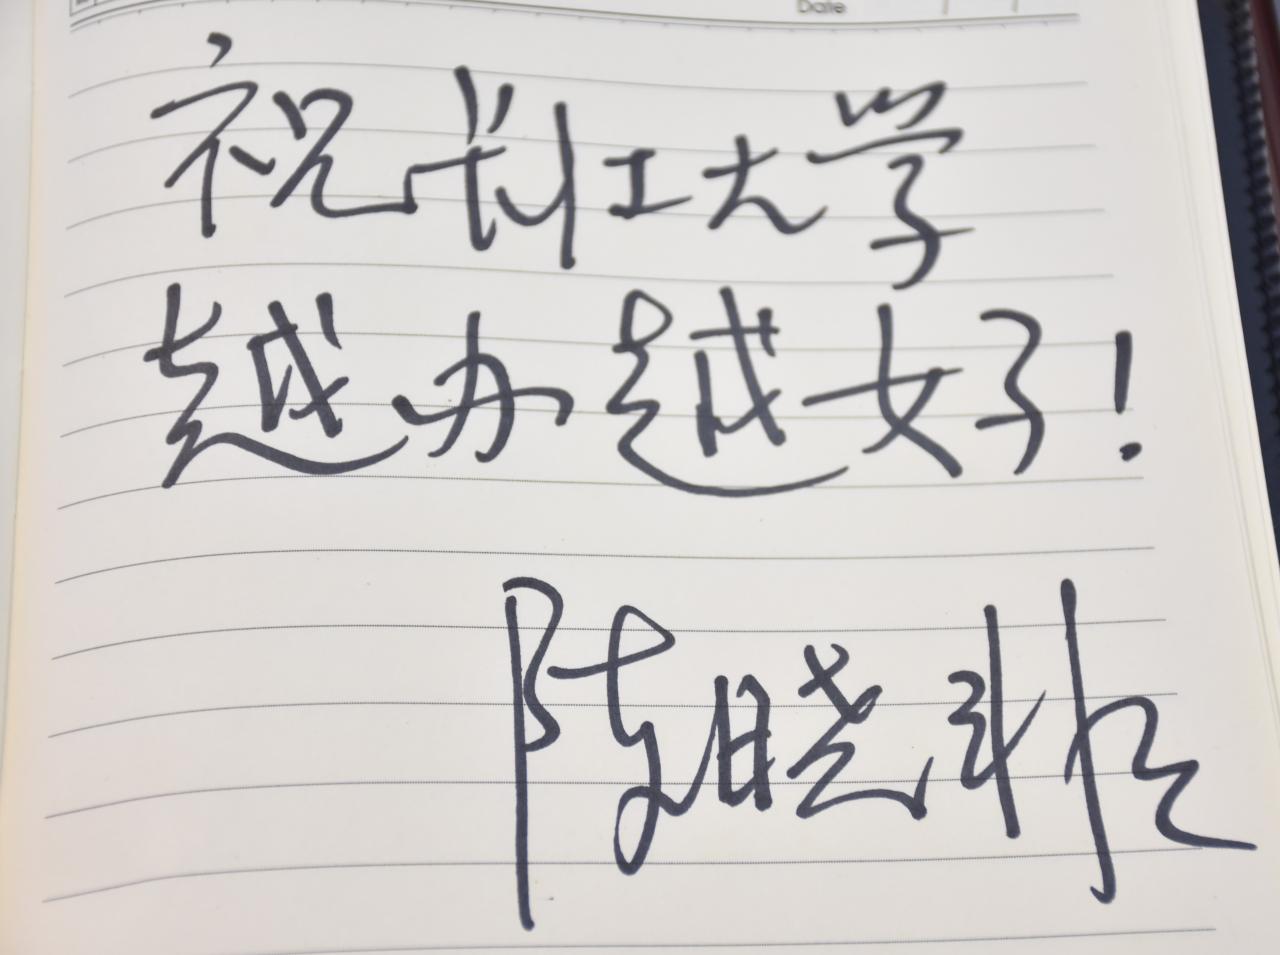 Date
祝长江大学
越办越好!
陈晓非